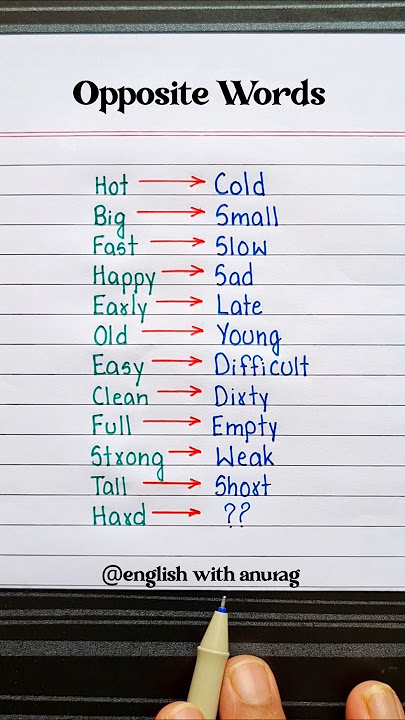 Opposite Words
Hot → Cold
Big → Small
Fast → Slow
Happy → Sad
Early → Late
Old → Young
Easy → Difficult
Clean → Dirty
Full → Empty
Strong → Weak
Tall → Short
Hard → ??
@english with anurag